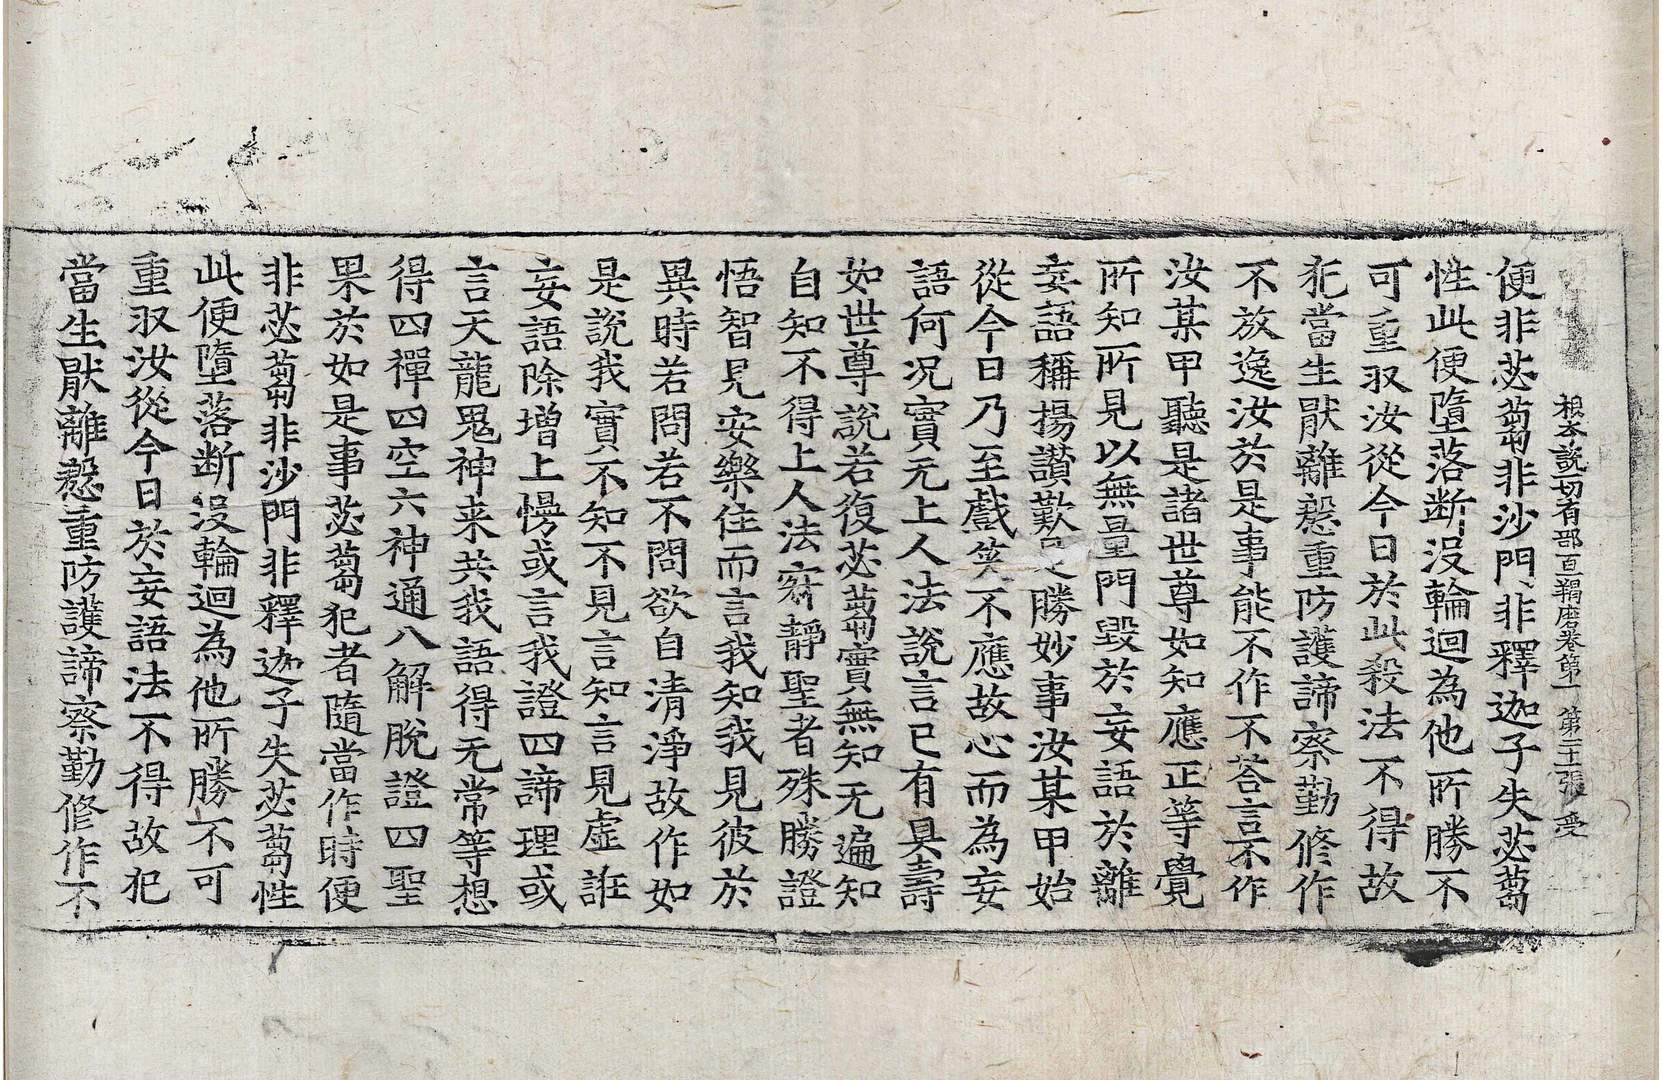 根本說一切有部百羯磨卷第一 第二十張 受
便非苾蒭非沙門非釋迦子失苾蒭
性此便墮落斷沒輪迴為他所勝不
可重収汝從今日於此殺法不得故
犯當生猒離慇重防護諦察勤修作
不放逸汝於是事能不作不荅言不作
汝某甲聽是諸世尊如知應正等覺
所知所見以無量門毀於妄語於離
妄語稱揚讃歎是勝妙事汝某甲始
從今日乃至戲笑不應故心而為妄
語何况實无上人法說言已有具壽
如世尊說若復苾蒭實無知无遍知
自知不得上人法寂靜聖者殊勝證
悟智見安樂住而言我知我見彼於
異時若問若不問欲自清淨故作如
是說我實不知不見言知言見虛誑
妄語除增上慢或言我證四諦理或
言天龍鬼神来共我語得无常等想
得四禪四空六神通八解脫證四聖
果於如是事苾蒭犯者隨當作時便
非苾蒭非沙門非釋迦子失苾蒭性
此便墮落断沒輪迴為他所勝不可
重収汝從今日於妄語法不得故犯
當生猒離慇重防護諦察勤修作不